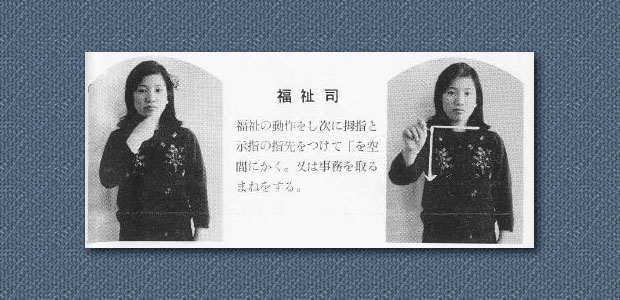 福祉司
福祉の動作をし次に拇指と
示指の指先をつけて「を空
間にかく。又は事務を取る
まねをする。